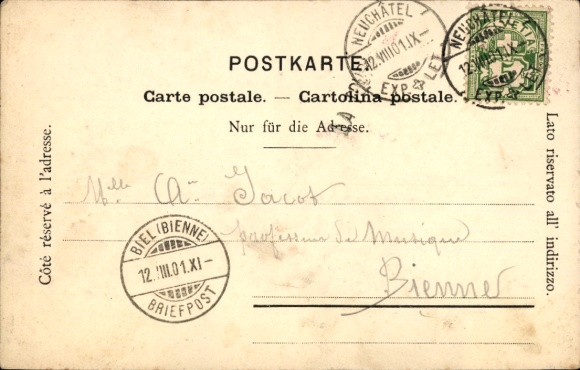 POSTKARTE.
Carte postale. — Cartolina postale.
Nur für die Adresse.
Côté réservé à l'adresse.
Lato riservato all' indirizzo.
NEUCHÂTEL
12.VIII.01.IX-
EXP. LET.
NEUCHÂTEL
12.VIII.01.IX
EXP.
Mlle A. Jacot
professeur de Musique
Bienne
BIEL (BIENNE)
12.VIII.01.XI-
BRIEFPOST